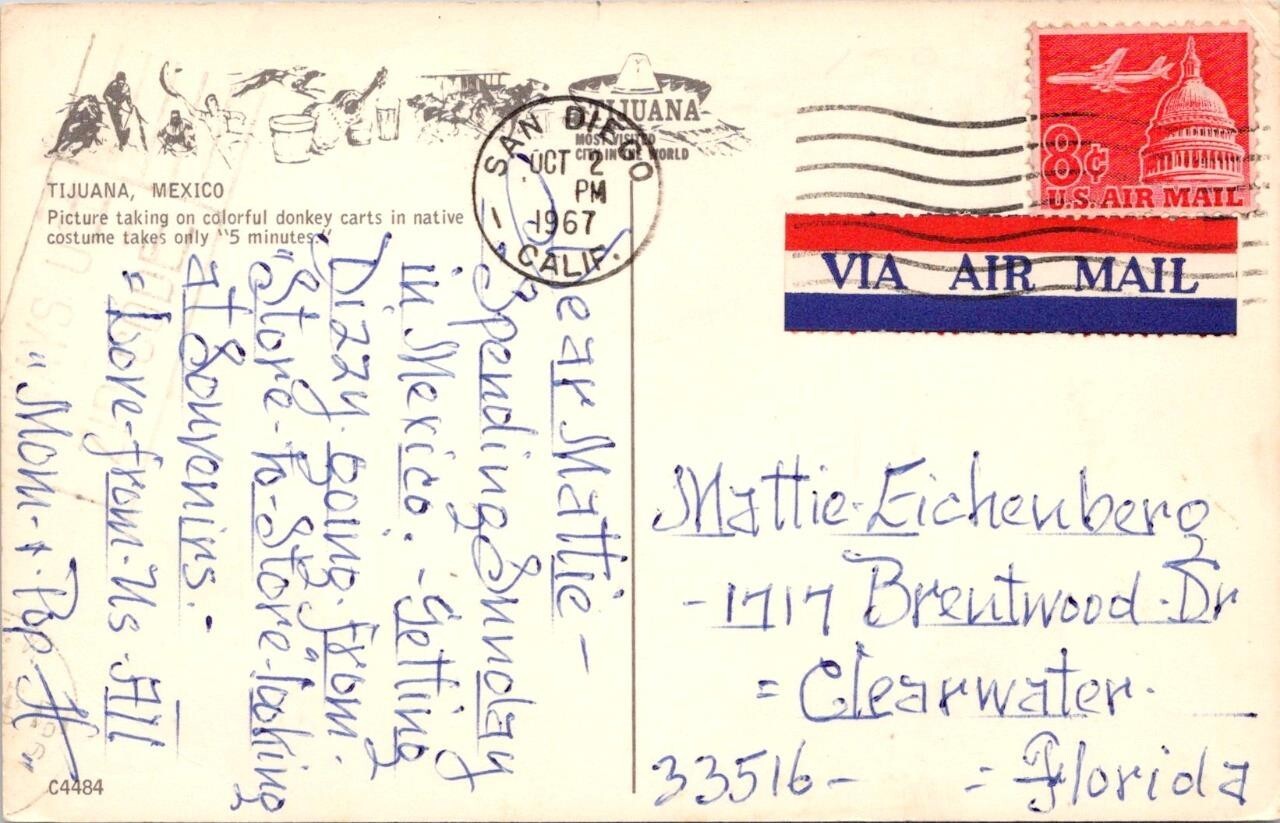 TIJUANA
MOST VISITED
CITY IN THE WORLD
TIJUANA, MEXICO
Picture taking on colorful donkey carts in native
costume takes only "5 minutes."
SAN DIEGO
OCT 2
PM
1967
CALIF.
8¢
U.S. AIR MAIL
VIA AIR MAIL
Dear Mattie -
Spending Sunday
in Mexico. - Getting
Dizzy. going. from.
"Store-to-Store" - looking
at Souvenirs.
= Love-from-Us-All
"Mom + Pop. H"
Mattie. Eichenberg
- 1717 Brentwood. Dr
= Clearwater.
33516 - = Florida
C4484